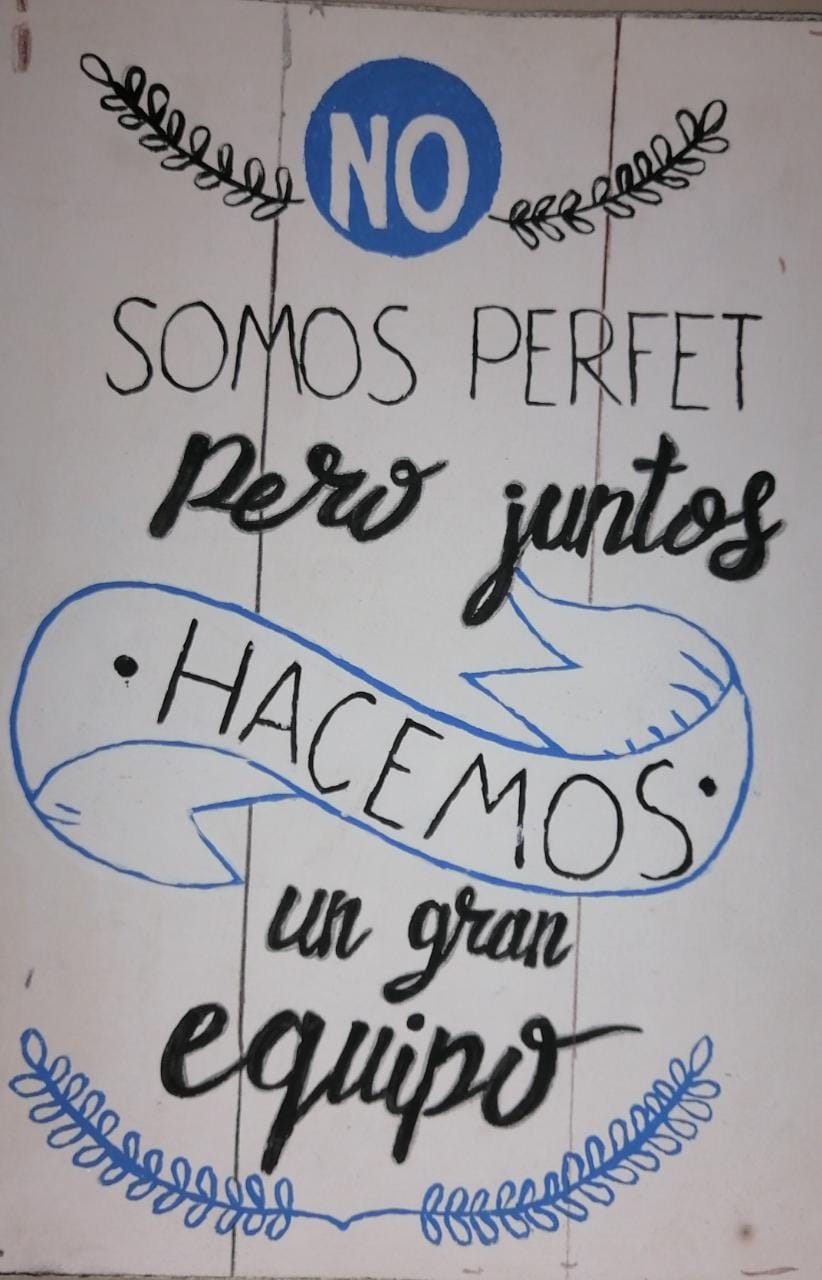 NO
SOMOS PERFET
Pero juntos
• HACEMOS •
un gran
equipo